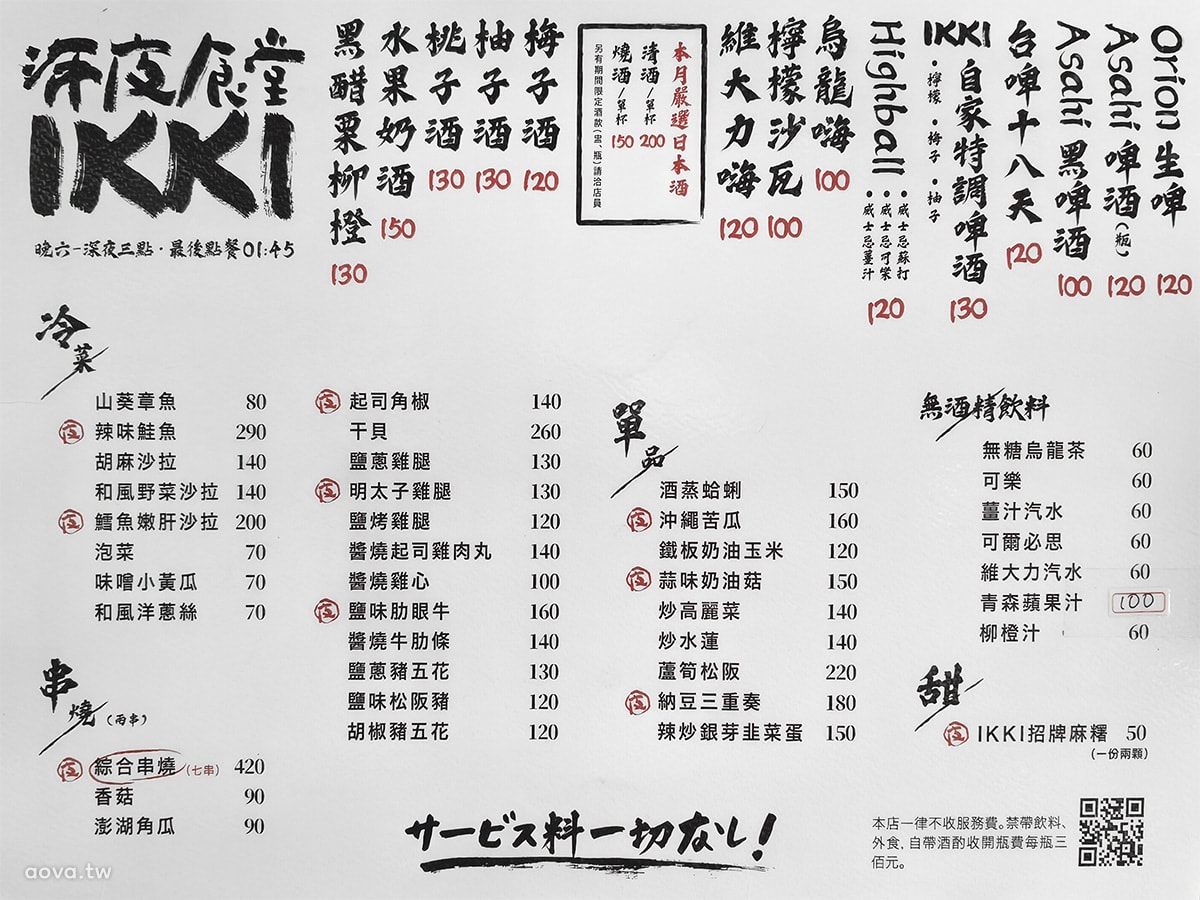 深夜食堂
IKKI
晚六-深夜三點·最後點餐01:45
黑醋栗柳橙 130
水果奶酒 150
桃子酒 130
柚子酒 130
梅子酒 120
本月嚴選日本酒
清酒/單杯 200
燒酒/單杯 150
另有期間限定酒款(盅、瓶)請洽店員
維大力嗨 120
檸檬沙瓦 100
烏龍嗨 100
Highball
•威士忌蘇打
•威士忌可樂
•威士忌薑汁
120
IKKI 自家特調啤酒 130
•檸檬 •梅子 •柚子
台啤十八天 120
Asahi 黑啤酒 100
Asahi 啤酒(瓶) 120
Orion 生啤 120
冷菜
山葵章魚 80
夜 辣味鮭魚 290
胡麻沙拉 140
和風野菜沙拉 140
夜 鱈魚嫩肝沙拉 200
泡菜 70
味噌小黃瓜 70
和風洋蔥絲 70
串燒(兩串)
夜 綜合串燒(七串) 420
香菇 90
澎湖角瓜 90
夜 起司角椒 140
干貝 260
鹽蔥雞腿 130
夜 明太子雞腿 130
鹽烤雞腿 120
醬燒起司雞肉丸 140
醬燒雞心 100
夜 鹽味肋眼牛 160
醬燒牛肋條 140
鹽蔥豬五花 130
鹽味松阪豬 120
胡椒豬五花 120
單品
酒蒸蛤蜊 150
夜 沖繩苦瓜 160
鐵板奶油玉米 120
夜 蒜味奶油菇 150
炒高麗菜 140
炒水蓮 140
蘆筍松阪 220
夜 納豆三重奏 180
辣炒銀芽韭菜蛋 150
無酒精飲料
無糖烏龍茶 60
可樂 60
薑汁汽水 60
可爾必思 60
維大力汽水 60
青森蘋果汁 100
柳橙汁 60
甜
夜 IKKI招牌麻糬 50
(一份兩顆)
サービス料一切なし!
本店一律不收服務費。禁帶飲料、
外食,自帶酒酌收開瓶費每瓶三
佰元。
aova.tw